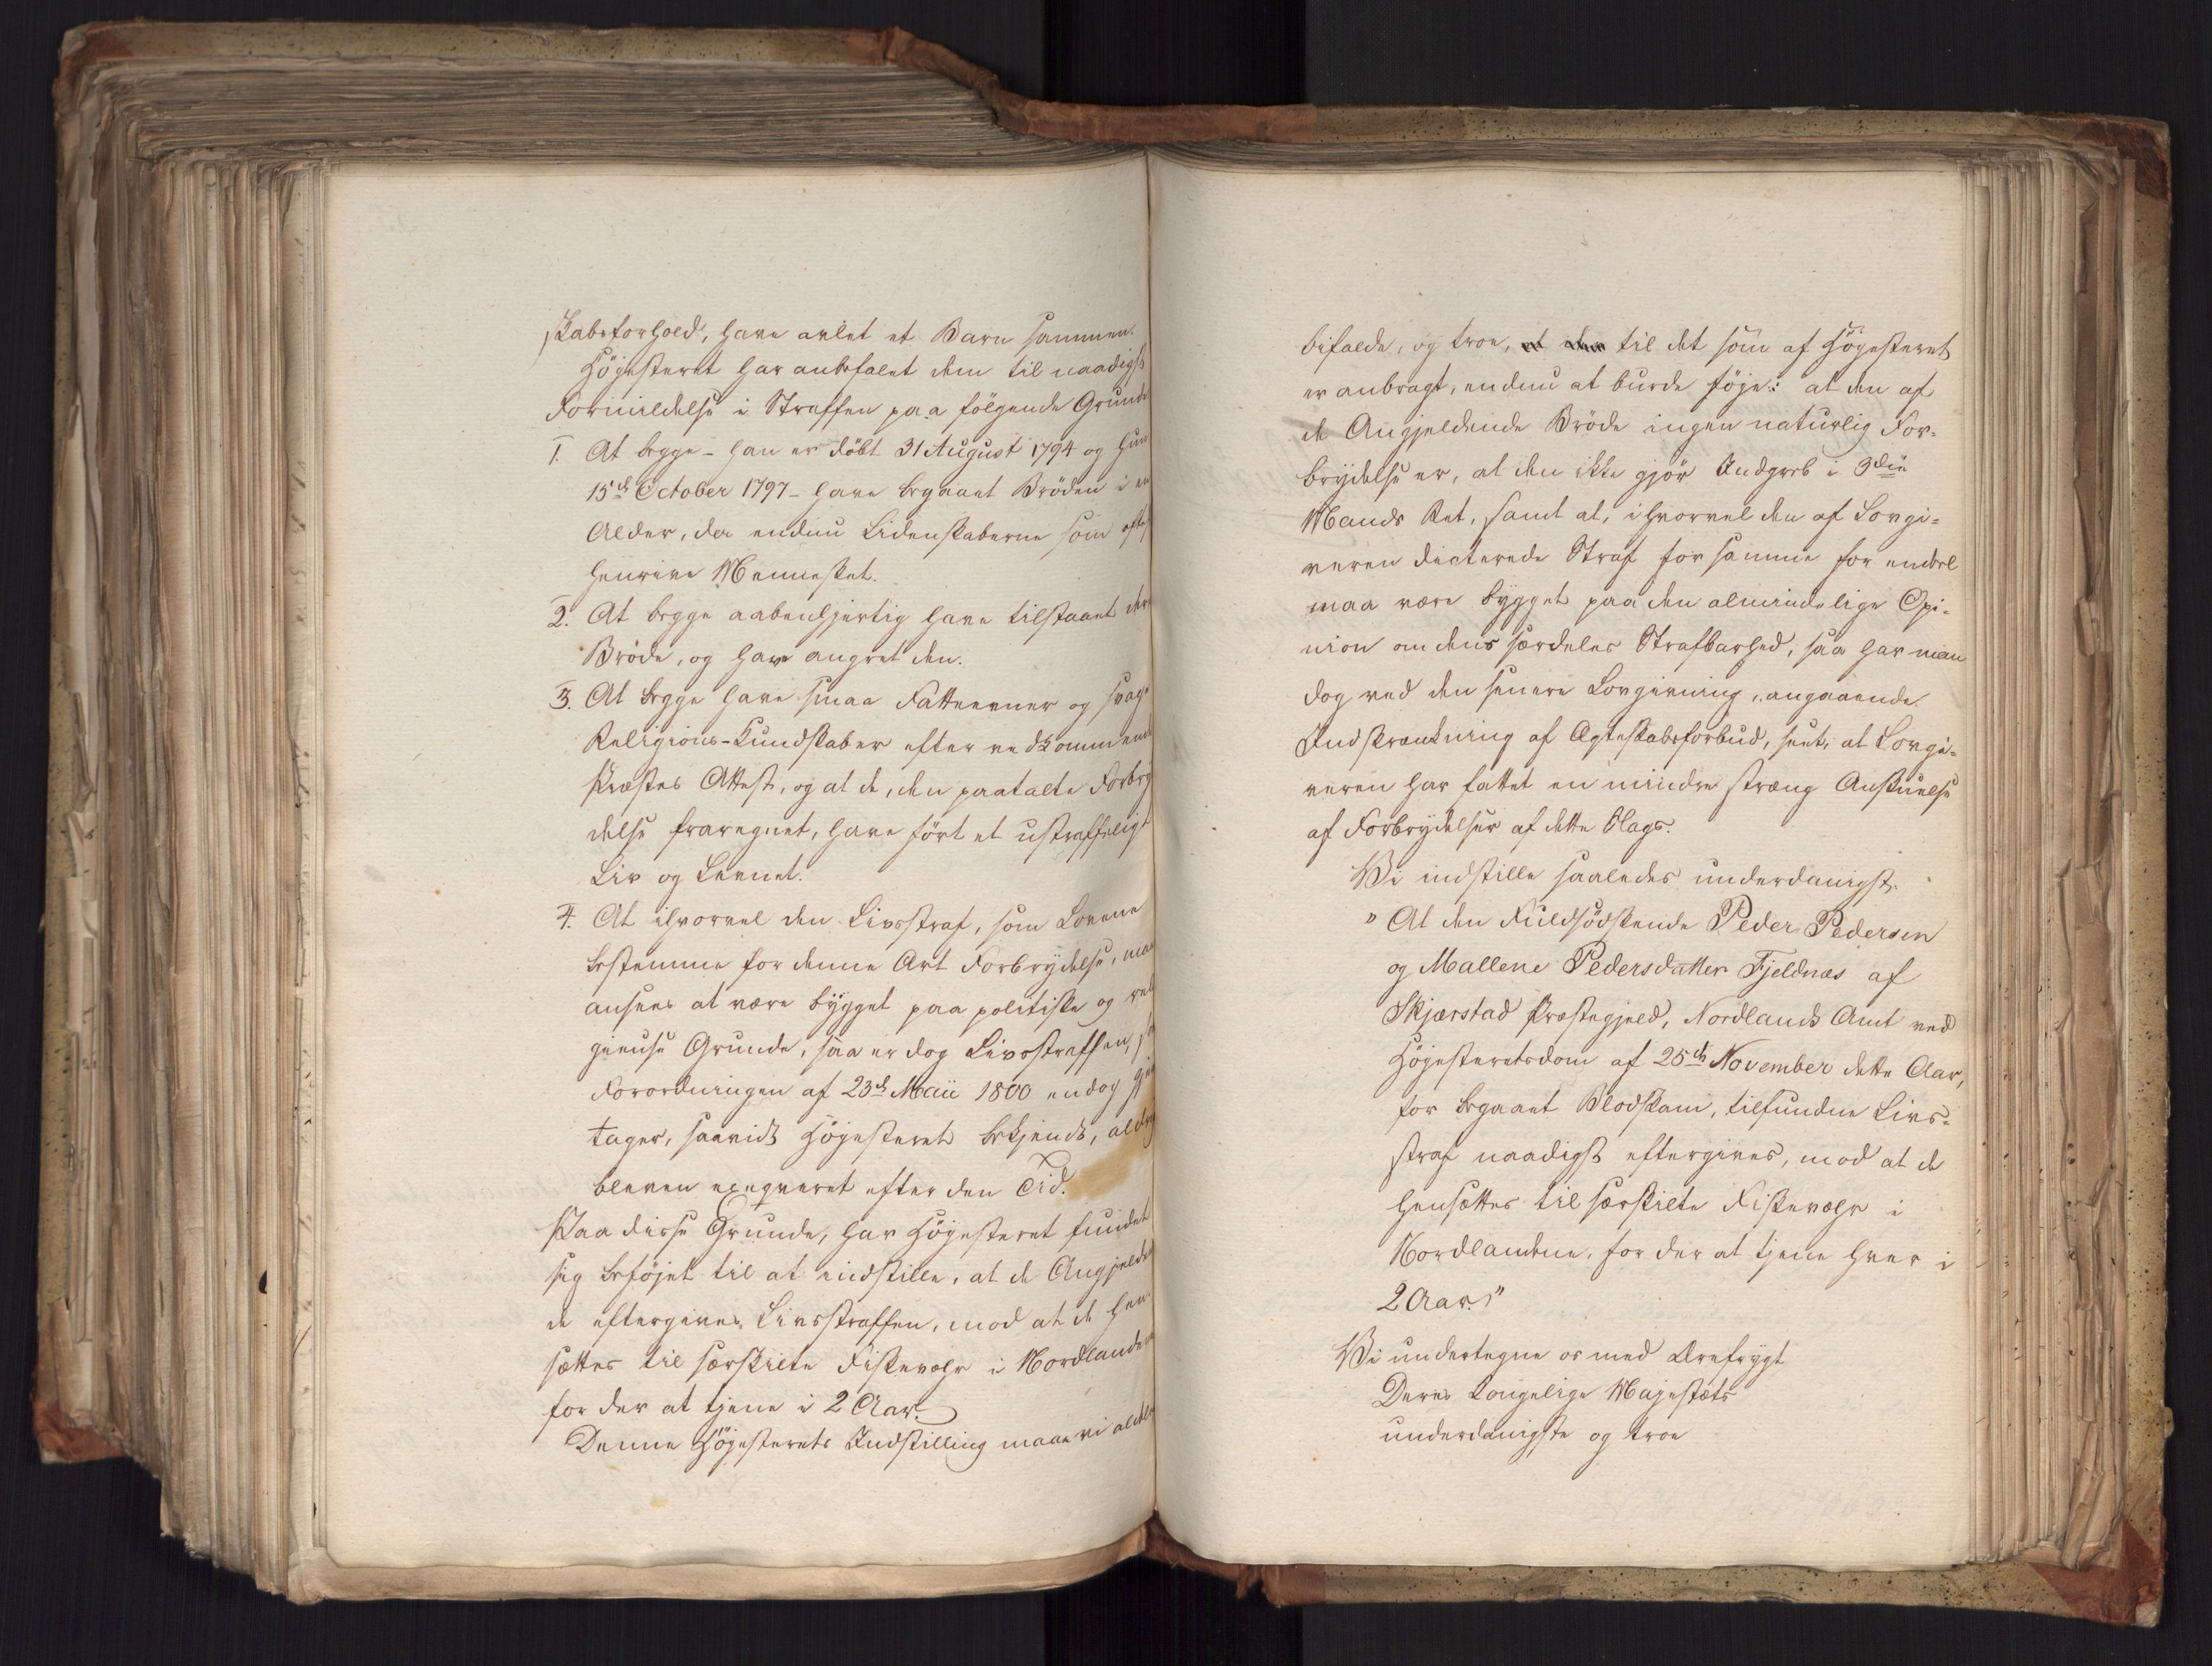 skabsforhold, have avlet et Barn sammen.
Höjesteret har anbefalet dem til naadigst
Formildelse i Straffen paa fölgende Grunde
1. At begge - han er döbt 31 August 1794 og hun
15de October 1797 - have begaaet Bröden i en
Alder, da endnu Lidenskaberne som oftest
henrive Mennesket.
2. At begge aabenhjertig have tilstaaet deres
Bröde, og have angret den.
3. At begge have smaa Fatteevner og svage
Religions-Kundskaber efter vedkommende
Præstes Attest, og at de, den paatalte Forbry
delse fraregnet, have fört et ustraffeligt
Liv og Levnet.
4. At ihvorvel den Livsstraf, som Lovene
bestemme for denne Art Forbrydelse, maa
ansees at være bygget paa politiske og reli
gieuse Grunde, saa er dog Livsstraffen,
Forordningen af 23de Maii 1800 endog
tager, saavidt Höjesteret bekjendt, aldrig
bleven exeqveret efter den Tid.
Paa disse Grunde, har Höjesteret fundet
sig beföjet til at indstille, at de Angjelden
de eftergives Livsstraffen, mod at de hen
sættes til særskilte Fiskevær i Nordlandene
for der at tjene i 2 Aar.
Denne Höjesterets Indstilling maae vi aldeles
bifalde, og troe, til det som af Höjesteret
er anbragt, endnu at burde föje: at den af
de Angjeldende Bröde ingen naturlig For-
brydelse er, at den ikke gjör Indgreb i 3die
Mands Ret, samt at, ihvorvel den af Lovgi-
veren dicterede Straf for samme for endeel
maa være bygget paa den almindelige Opi-
nion om dens særdeles Strafbarhed, saa har man
dog ved den senere Lovgivning, angaaende
Indskrænkning af Ægteskabsforbud, seet, at Lovgi-
veren har fattet en mindre stræng Anskuelse
af Forbrydelser af dette Slags.
Vi indstille saaledes underdanigst:
" At den Fuldsödskende Peder Pedersen
og Mallene Pedersdatter Fjeldnæs af
Skjærstad Præstegjeld, Nordlands Amt ved
Höjesteretsdom af 25de November dette Aar,
for begaaet Blodskam, tilfundne Livs-
straf naadigst eftergives, mod at de
hensættes til særskilte Fiskevær i
Nordlandene, for der at tjene hver i
2 Aar."
Vi undertegne os med Ærefrygt
Deres Kongelige Majestæts
underdanigste og troe